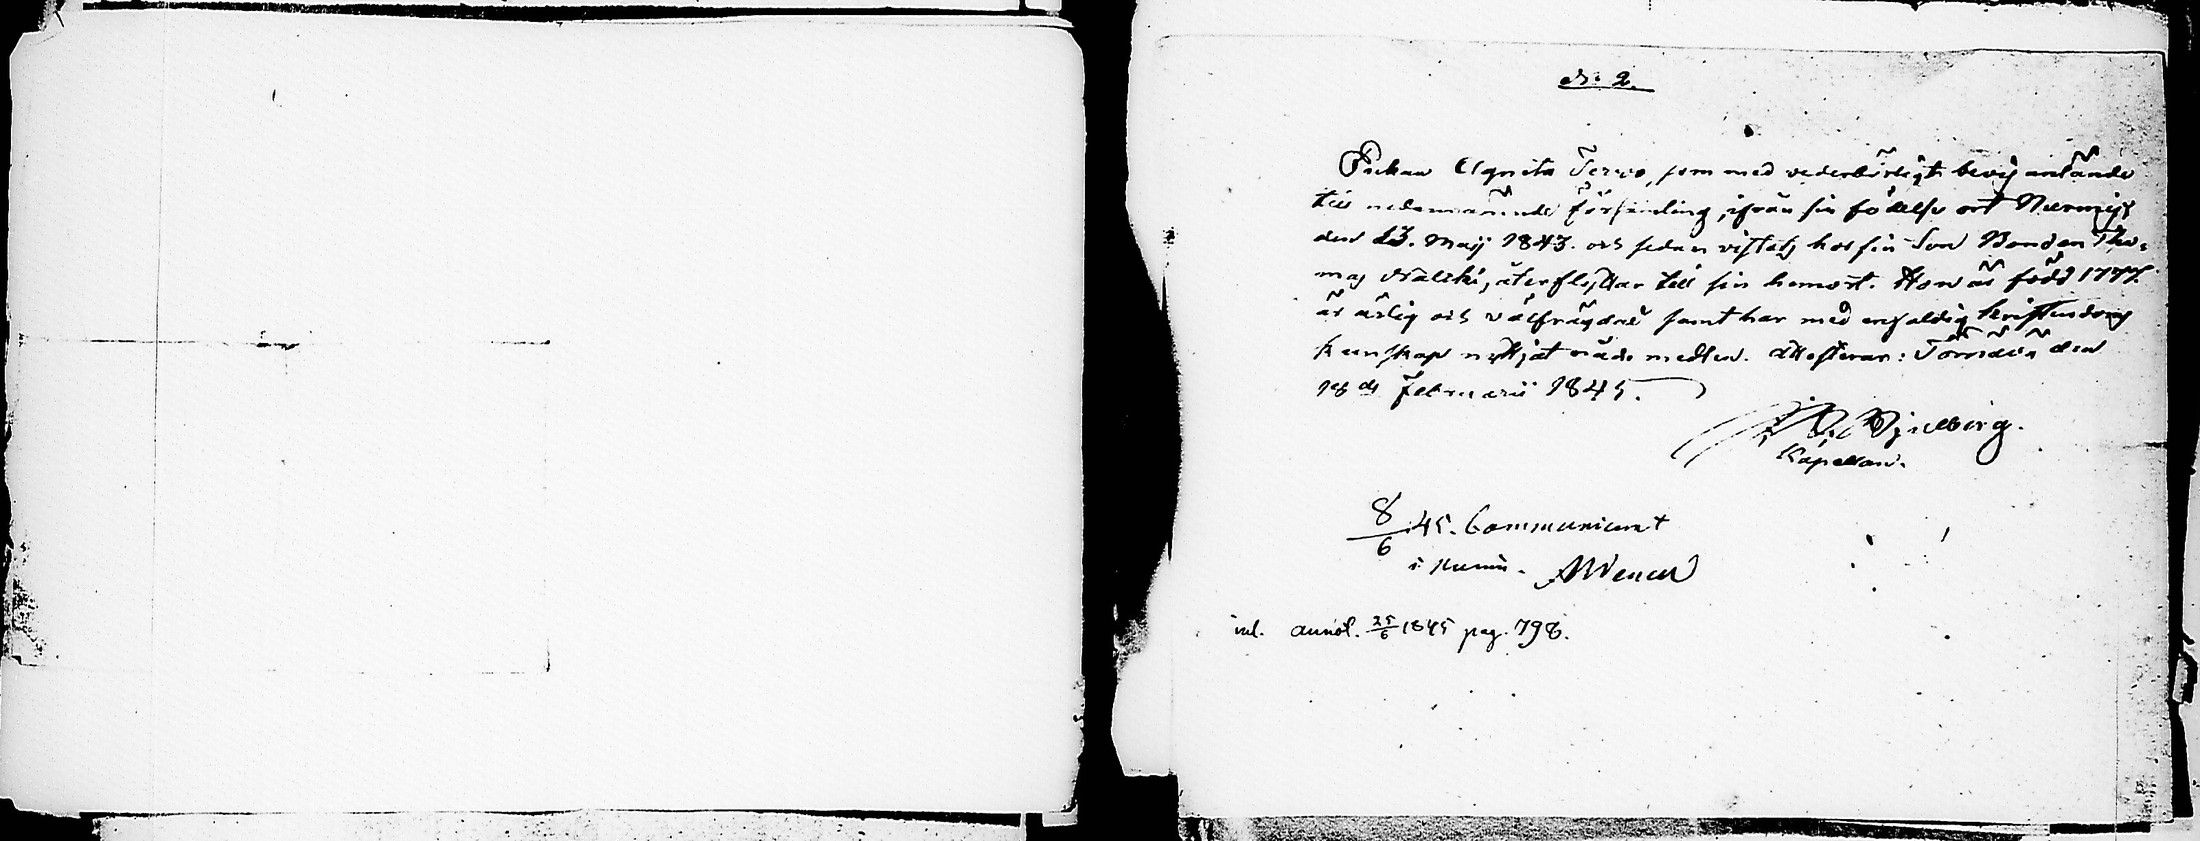 No 2.
Enkan Agneta Tervo, som med vederbörligt bevis anlände
till nedannämnde församling, ifrån sin födelse ort Nurmijs
den 23. Maij 1843. och sedan vistats hos sin Son Bonden Tho-
mas återflyttar till sin hemort. Hon är född 1777.
är ärlig och välfrägdad samt har med enfaldig kristendoms
kunskap nyttjat nåde medlen. Attesterar: den
18de Februarii 1845.
Kapellan.
8/6 45. Communicerat
i Nurm.
inl. annot. 25/6 1845 pag. 798.